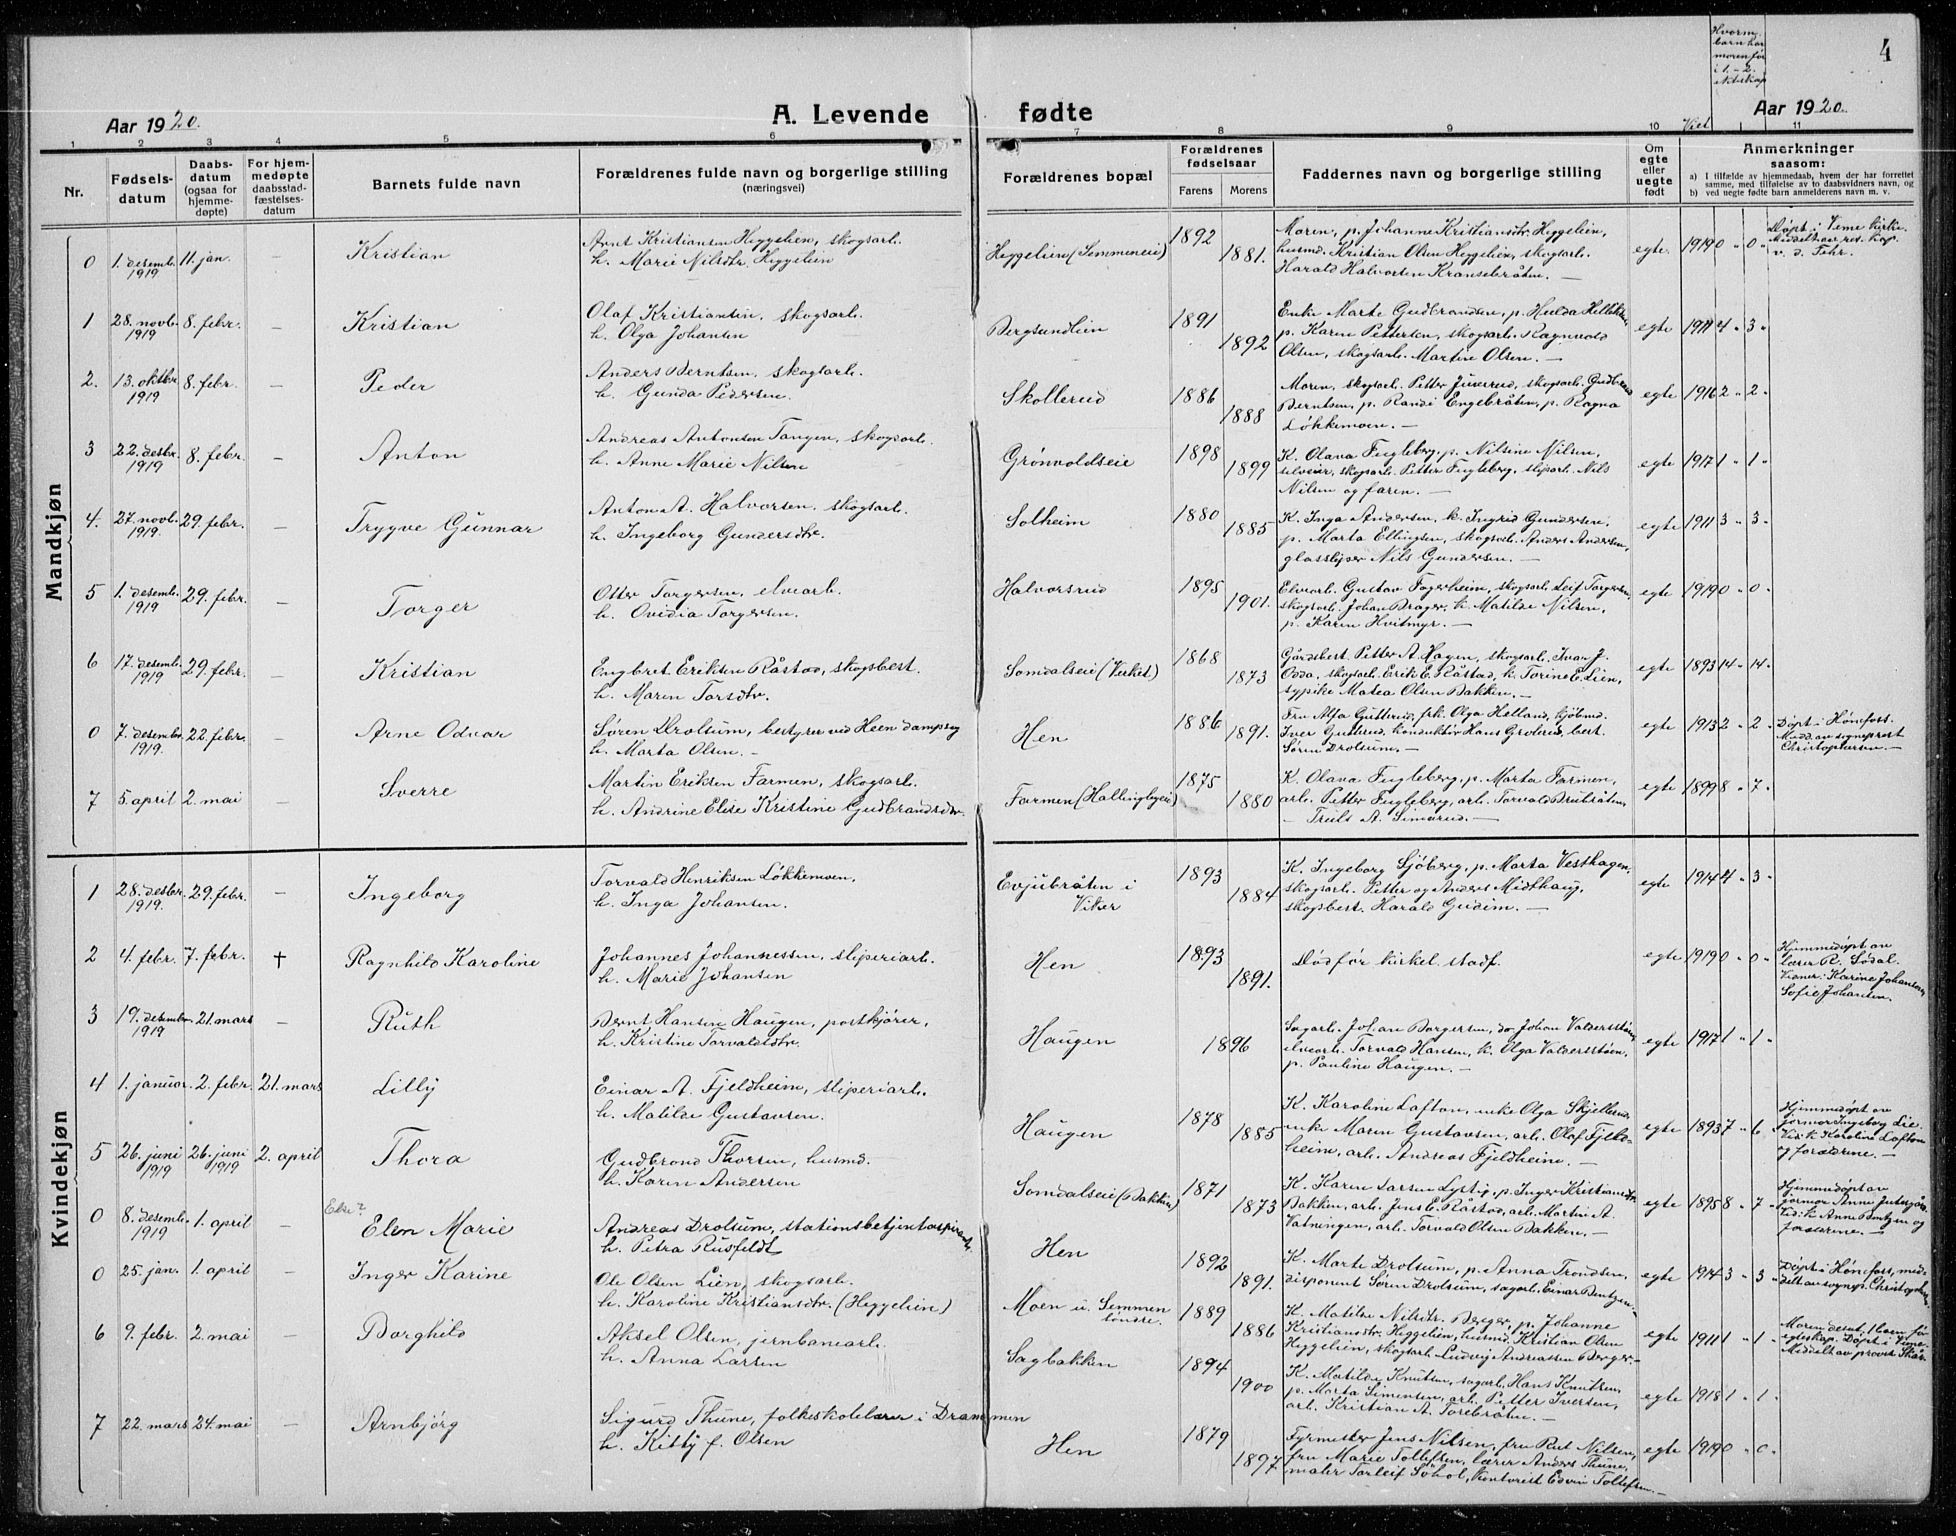 4
Hvorm.
barn har
moren før
i 1.-2.
ekteskap
Aar 1920.
A. Levende fødte
Aar 1920.
1 2 3 4 5 6 7 8 9 10 Viet 11
Nr.
Fødsels-
datum
Daabs-
datum
(ogsaa for
hjemme-
døpte)
For hjem-
medøpte
daabsstad-
fæstelses-
datum
Barnets fulde navn
Forældrenes fulde navn og borgerlige stilling
(næringsvei)
Forældrenes bopæl
Forældrenes
fødselsaar
Farens Morens
Faddernes navn og borgerlige stilling
Om
egte
eller
uegte
født
Anmerkninger
saasom:
a) I tilfælde av hjemmedaab, hvem der har forrettet
samme, med tilføielse av to daabsvidners navn, og
b) ved uegte fødte barn anmelderens navn m. v.
Mandkjøn
0 1. desemb. 1919 11. jan. Kristian
Arnt Kristiansen Heggelien, skogsarb.
h. Marie Nilsdtr. Heggelien
Heggelien (Semmeneie) 1892 1881.
Moren, p. Johanne Kristiansdtr. Heggelien,
husmd. Kristian Olsen Heggelien, skogsarb.
Harald Halvorsen Kransebråten. —
egte. 1919 0 " 0 "
Døpt i Veme kirke.
Middelt av res. kap.
v. d. Fehr.
1 28. novb. 1919 8. febr. — Kristian
Olaf Kristiansen, skogsarb.
h. Olga Johansen
Bergsundlein 1891 1892
Enke Marte Gudbrandsen, p. Hulda
p. Karen Pettersen, skogsarb. Ragnvald
Olsen, skogsarb. Martin Olsen. —
egte 1911 4 " 3 "
2. 13. oktbr. 1919 8. febr. — Peder
Anders Berntsen, skogsarb.
h. Gunda Pedersen.
Skollerud 1886 1888
Moren, skogsarb. Petter Juserud, skogsarb. Gudbrand
Berntsen, p. Randi Engebråten, p. Ragna
Løkkemoen. —
egte 1916 2 " 2 "
3 22. desbr. 1919 8. febr. — Anton
Andreas Antonsen Tangen, skogsarb.
h. Anne Marie Nilsen
Grønvoldseie 1898 1899
K. Olava Fugleberg, p. Nilsine Nilsen,
elveier, skogsarb. Petter Fugleberg, slipsarb. Nils
Nilsen og faren. —
egte 1917 1 " 1 "
4. 27. novb. 1919. 29. febr. — Trygve Gunnar
Anton A. Halvorsen, skogsarb.
h. Ingeborg Gundersdtr.
Solheim 1880 1885
K. Inga Andersen, k. Ingrid Gundersen,
p. Marta Ellingsen, skogsarb. Anders Andersen,
glassliper Nils Gundersen. —
egte 1911 3 " 3 "
5 1. desemb. 1919 29. febr. — Torger
Otter Torgersen, elvearb.
h. Ovidia Torgersen.
Halvorsrud 1895 1901.
Elvearb. Gustav Fagerheim, skogsarb. Leif Torgersen,
skogsarb. Johan Brager, k. Matilde Nilsen,
p. Karen Hvitmyr. —
egte 1919 0 " 0 "
6 17. desemb. 1919 29. febr. — Kristian
Engbret Eriksen Råstad, skogsbest.
h. Maren Torsdtr.
Somdalseie (Verket) 1868 1873
Gårdsbest. Petter A. Hagen, skogsarb. Ivar J.
Odda, skogsarb. Erik E. Råstad, k. Torine E. Lien,
sypike Matea Olsen Bakken. —
egte 1893 14 " 14 "
0 7. desembr. 1919. 22. febr. — Arne Odvar
Søren Drolsum, bestyrer ved Heen dampsag
h. Marta Olsen. —
Hen 1886 1891.
Fru Alfa Gutterud, frk. Olga Helland, kjøbmd.
Iver Gutterud, konduktør Hans Grolerud, best.
Søren Drolsum. —
egte 1913 2 " 2 "
Døpt i Hønefoss.
Medd. av sogneprest
Christophersen. —
7 5. april 2. mai — Sverre
Martin Eriksen Farmen, skogsarb.
h. Andrine Elise Kristine Gudbrandsdtr.
Farmen (Hallingbyeie) 1875 1880
K. Olava Fugleberg, p. Marta Farmen,
arb. Petter Fugleberg, arb. Torvald Brubråten,
— Truls A. Simarud. —
egte 1899 8 " 7 "
Kvindekjøn
1 28. desbr. 1919. 29. febr. — Ingeborg
Torvald Henriksen Løkkemoen,
h. Inga Johansen.
Evjubråten i
Viker 1893 1884
K. Ingeborg Sjøberg, p. Marta Vesthagen,
skogsarb. Petter og Anders Midthaug,
skogsbest. Harald Gudim. —
egte 1914 4 " 3 "
2 4. febr. 7. febr. † Ragnhild Karoline
Johannes Johannessen, sliperiarb.
h. Marie Johansen
Hen 1893 1891.
Død før kirkel. stadf.
egte 1919 0 " 0 "
Hjemmedøpt av
lærer R. Sødal.
Vidner: Karine Johansen,
Sofie Johansen.
3 19. desembr. 1919 21. mars — Ruth
Bernt Hansen Haugen, postkjører,
h. Kristine Torvaldsdtr.
Haugen 1896
Sagarb. Johan Borgersen, do Johan Valdersstøen,
elvearb. Torvald Hansen, k. Olga Valdersstøen,
p. Pauline Haugen. —
egte 1917 1 " 1 "
4 1. januar. 2. febr. 21. mars Lilly
Einar A. Fjeldheim, sliperiarb.
h. Matilde Gustavsen.
Haugen 1878 1885
K. Karoline Lofton, enke Olga Skjellerud,
enke Maren Gustavsen, arb. Olaf Fjeld-
heim, arb. Andreas Fjeldheim. —
egte 1893 7 " 6 "
Hjemmedøpt av
jormor Ingeborg Lie.
Vid: k. Karoline Lofton
og forældrene. —
5 26. juni 1919 26. juni 1919 2. april Thora
Gudbrand Thorsen, husmd.
h. Karen Andersen
Somdalseie (Bakken) 1871 1873
K. Karen Larsen Lystig, p. Inger Kristiansdtr.
Bakken, arb. Jens E. Råstad, arb. Martin A.
Vatningen, arb. Torvald Olsen Bakken. —
egte 1895 8 " 7 "
Hjemmedøpt av
jormor Anne
Vid: k. Anne Bentzen og
forældrene. —
0 8. desemb. 1919 1. april — Else?
Elen Marie
Andreas Drolsum, stationsbetjentaspirant,
h. Petra Rusfeldt
Hen 1892 1891.
K. Marte Drolsum, p. Anna Trondsen,
disponent Søren Drolsum, sagarb. Einar Bentzen. —
egte 1914 3 " 3 "
Døpt i Hønefoss, med-
delt av sognepr. Christophersen
0 25. jan. 1. april — Inger Karine
Ole Olsen Lien, skogsarb.
h. Karoline Kristiansdtr. (Heggelien)
Moen u. Semmen
søndre 1889 1886
K. Matilde Nilsdtr. Berger, p. Johanne
Kristiansdtr. Heggelien, husmd. Kristian Olsen
Heggelien, skogsarb. Ludvig Andreassen Berger. —
egte 1911 1 " 1 "
Moren desut. 1 barn før
egteskap. Døpt i Veme.
Middelt av provst Skår.
6 9. febr. 2. mai — Borghild
Aksel Olsen, jernbanearb.
h. Anna Larsen
Sagbakken 1894 1900
K. Matilde Knutsen, sagarb. Hans Knutsen,
p. Marta Simensen, arb. Petter Iversen,
arb. Kristian A. Torebråten. —
egte 1918 1 " 1 "
7 22. mars 24. mai — Arnbjørg
Sigurd Thune, folkeskolelærer i Drammen
h. Kitty f. Olsen
Hen 1879 1897
Fyrmester Jens Nilsen, fru Rut Nilsen,
fru Marie Tollefsen, lærer Anders Thune,
maler Torleif Søhol, kontorist Edvin Tollefsen. —
egte 1919 0 " 0 "